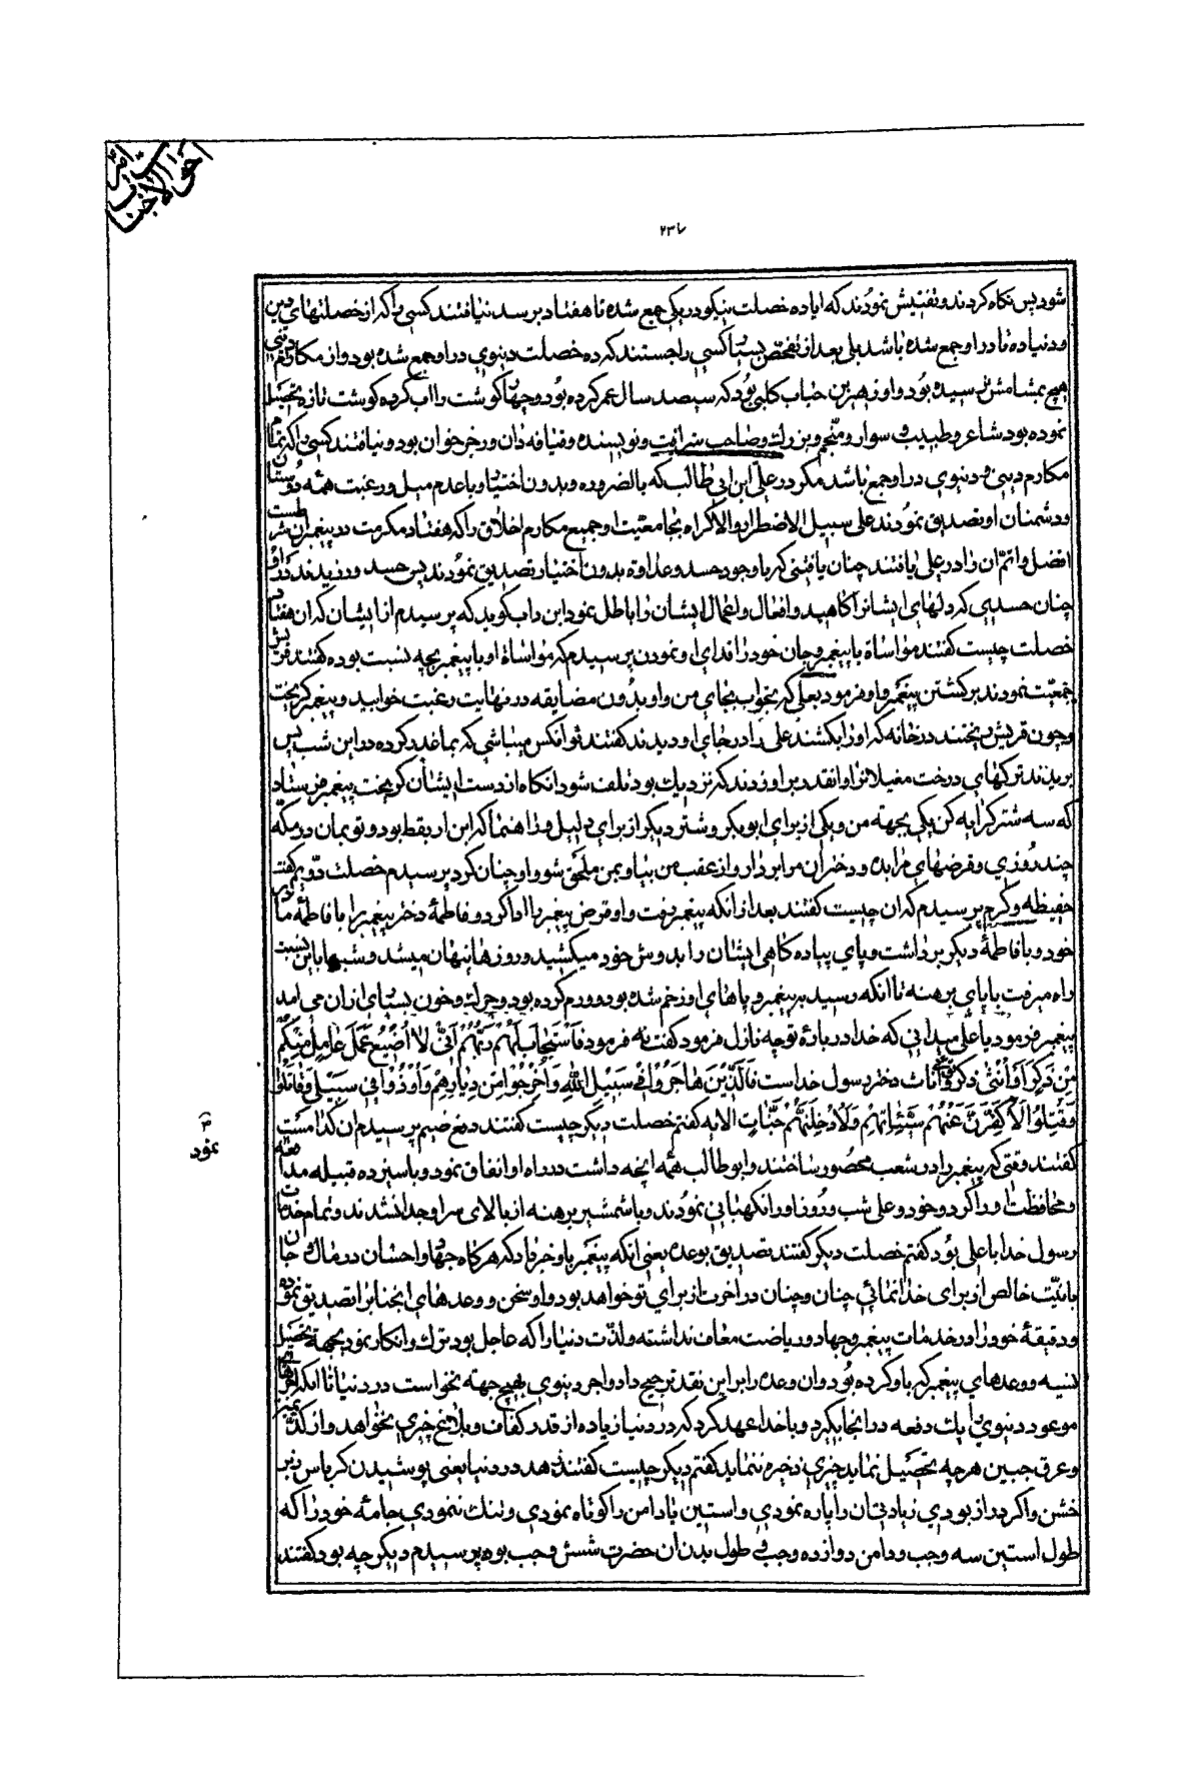 احوالات اخر انجناب
۲۳۷
شود پس نکاه کردند و تفتیش نمودند که ایا ده خصلت نیکو در یکی جمع شده تا هفتاد برسد نیافتند کسی را که از خصلتهای دین
و دنیا ده تا در او جمع شده باشد بلی بعد از تفحص بسیار کسی را جستند که ده خصلت دنیوی در او جمع شده بود و از مکارم دینی
هیچ بمشامش نرسیده بود و او زهیر بن حباب کلبی بود که سیصد سال عمر کرده بود و جهاد کوشت را اب کرده کوشت تازه تحصیل
نموده بود شاعر و طبیب و سوار و منجم و بزرك و صاحب شرافت و نویسنده و قیافه دان و رخر خوان بود و نیافتند کسی را که تمام
مکارم دینی و دنیوی در او جمع باشد مکر در علی ابن ابی طالب که بالضروره و بدون اختیار و با عدم میل و رغبت همه دوستان
و دشمنان او تصدیق نمودند علی سبیل الاضطرار و الاکراه بجامعیت او جمیع مکارم اخلاق را که هفتاد مکرمت در پیغمبران شرطست
افضل و اتم ان را در علی یافتند چنان یافتنی که با وجود حسد و عداوة بدون اختیار تصدیق نمودند پس حسد ورزیدند در او
چنان حسدی که دلهای ایشانرا کاهید و افعال و اعمال ایشان را باطل نمود ابن داب کوید که پرسیدم از ایشان که ان هفتاد
خصلت چیست کفتند مواساة با پیغمبر و جان خود را فدای او نمودن پرسیدم که مواساة او با پیغمبر بچه نسبت بوده کفتند قریش
جمعیت نمودند بر کشتن پیغمبر و او فرمود بعلی که بخواب بجای من و او بدون مضایقه در نهایت رغبت خوابید و پیغمبر کریخت
و چون قریش ریختند در خانه که او را بکشند علی را در جای او دیدند کفتند تو انکس میباشی که بما غدر کرده در این شب پس
بریدند ترکهای درخت مغیلانرا و انقدر بر او زدند که نزدیك بود تلف شود انکاه از دست ایشان کریخت پیغمبر فرستاد
که سه شتر کرایه کن یکی بجهته من و یکی از برای ابوبکر و شتر دیکر از برای دلیل و راهنما که ابن اریقط بود و تو بمان در مکه
چند روزی و قرضهای مرا بده و دختران مرا بردار و از عقب من بیا و بمن ملحق شو و او چنان کرد پرسیدم خصلت دویم کفتند
حفیظه و کرم پرسیدم که ان چیست کفتند بعد از انکه پیغمبر رفت و او قرض پیغمبر را ادا کرد و فاطمهٔ دختر پیغمبر را با فاطمهٔ مادر
خود و با فاطمهٔ دیکر برداشت و پای پیاده کاهی ایشان را بدوش خود میکشید و روزها پنهان میشد و شبها باین نسبت
راه میرفت با پای برهنه تا انکه رسید بر پیغمبر و پاهای او زخم شده بود و ورم کرده بود و چرك و خون بسیار از ان می امد
پیغمبر فرمود یا علی میدانی که خدا در بارهٔ تو چه نازل فرمود کفت نه فرمود فَاسْتَجٰابَ لَهُمْ رَبُّهُمْ اَنّٖى لٰا اُضٖیعُ عَمَلَ عٰامِلٍ مِنْکُمْ
مِنْ ذَکَرٍ اَوْ اُنْثٰى ذکر تو و اناث دختر رسول خداست فَالَّذٖینَ هٰاجَرُوا فٖى سَبٖیلِ اللّٰهِ وَ اُخْرِجُوا مِنْ دِیٰارِهِمْ وَ اُوذُوا فٖى سَبٖیلٖى وَ قٰاتَلُوا
وَ قُتِلُوا لَاُکَفِّرَنَّ عَنْهُمْ سَیِّئٰاتِهِمْ وَ لَاُدْخِلَنَّهُمْ جَنّٰاتٍ الایه کفتم خصلت دیکر چیست کفتند دفع ضیم پرسیدم ان کدامست
کفتند وقتی که پیغمبر را در شعب محصور ساختند و ابوطالب همه انچه داشت در راه او انفاق نمود و با سیزده قبیله مدافعه
و محافظت او را کرد و خود و علی شب و روز او را نکهبانی نمودند و با شمشیر برهنه از بالای سر او جدا نشدند و تمام خدمات
رسول خدا با علی بود کفتم خصلت دیکر کفتند تصدیق بوعده یعنی انکه پیغمبر باو خبر داد که هر کاه جهاد و احسان در مال و جان
با نیت خالص از برای خدا نمائی چنان و چنان در اخرت از برای تو خواهد بود و او سخن و وعدهای انجنابرا تصدیق نموده
و دقیقهٔ خود را در خدمات پیغمبر و جهاد و ریاضت معاف نداشته و لذت دنیا را که عاجل بود ترك و انکار نمود بجهته تحصیل
نسیه و وعدهای پیغمبر که باو کرده بود و ان وعده را بر این نقد ترجیح داد و اجر دنیوی بهیچ جهته نخواست در دنیا تا انکه
موعود دنیوی را یك دفعه در انجا بکیرد و با خدا عهد کرد که در دنیا زیاده از قدر کفاف و بلاغ چیزی نخواهد و از کد یمین
و عرق جبین هر چه تحصیل نماید چیزی ذخیره ننماید کفتم دیکر چیست کفتند زهد در دنیا یعنی پوشیدن کرباس زبر
خشن و اکر دراز بودی زیادتی ان را پاره نمودی و استین یا دامن را کوتاه نمودی و تنك ننمودی جامهٔ خود را که
طول استین سه وجب و دامن دوازده وجب و طول بدن ان حضرت شش وجب بوده پرسیدم دیکر چه بود کفتند
نمود